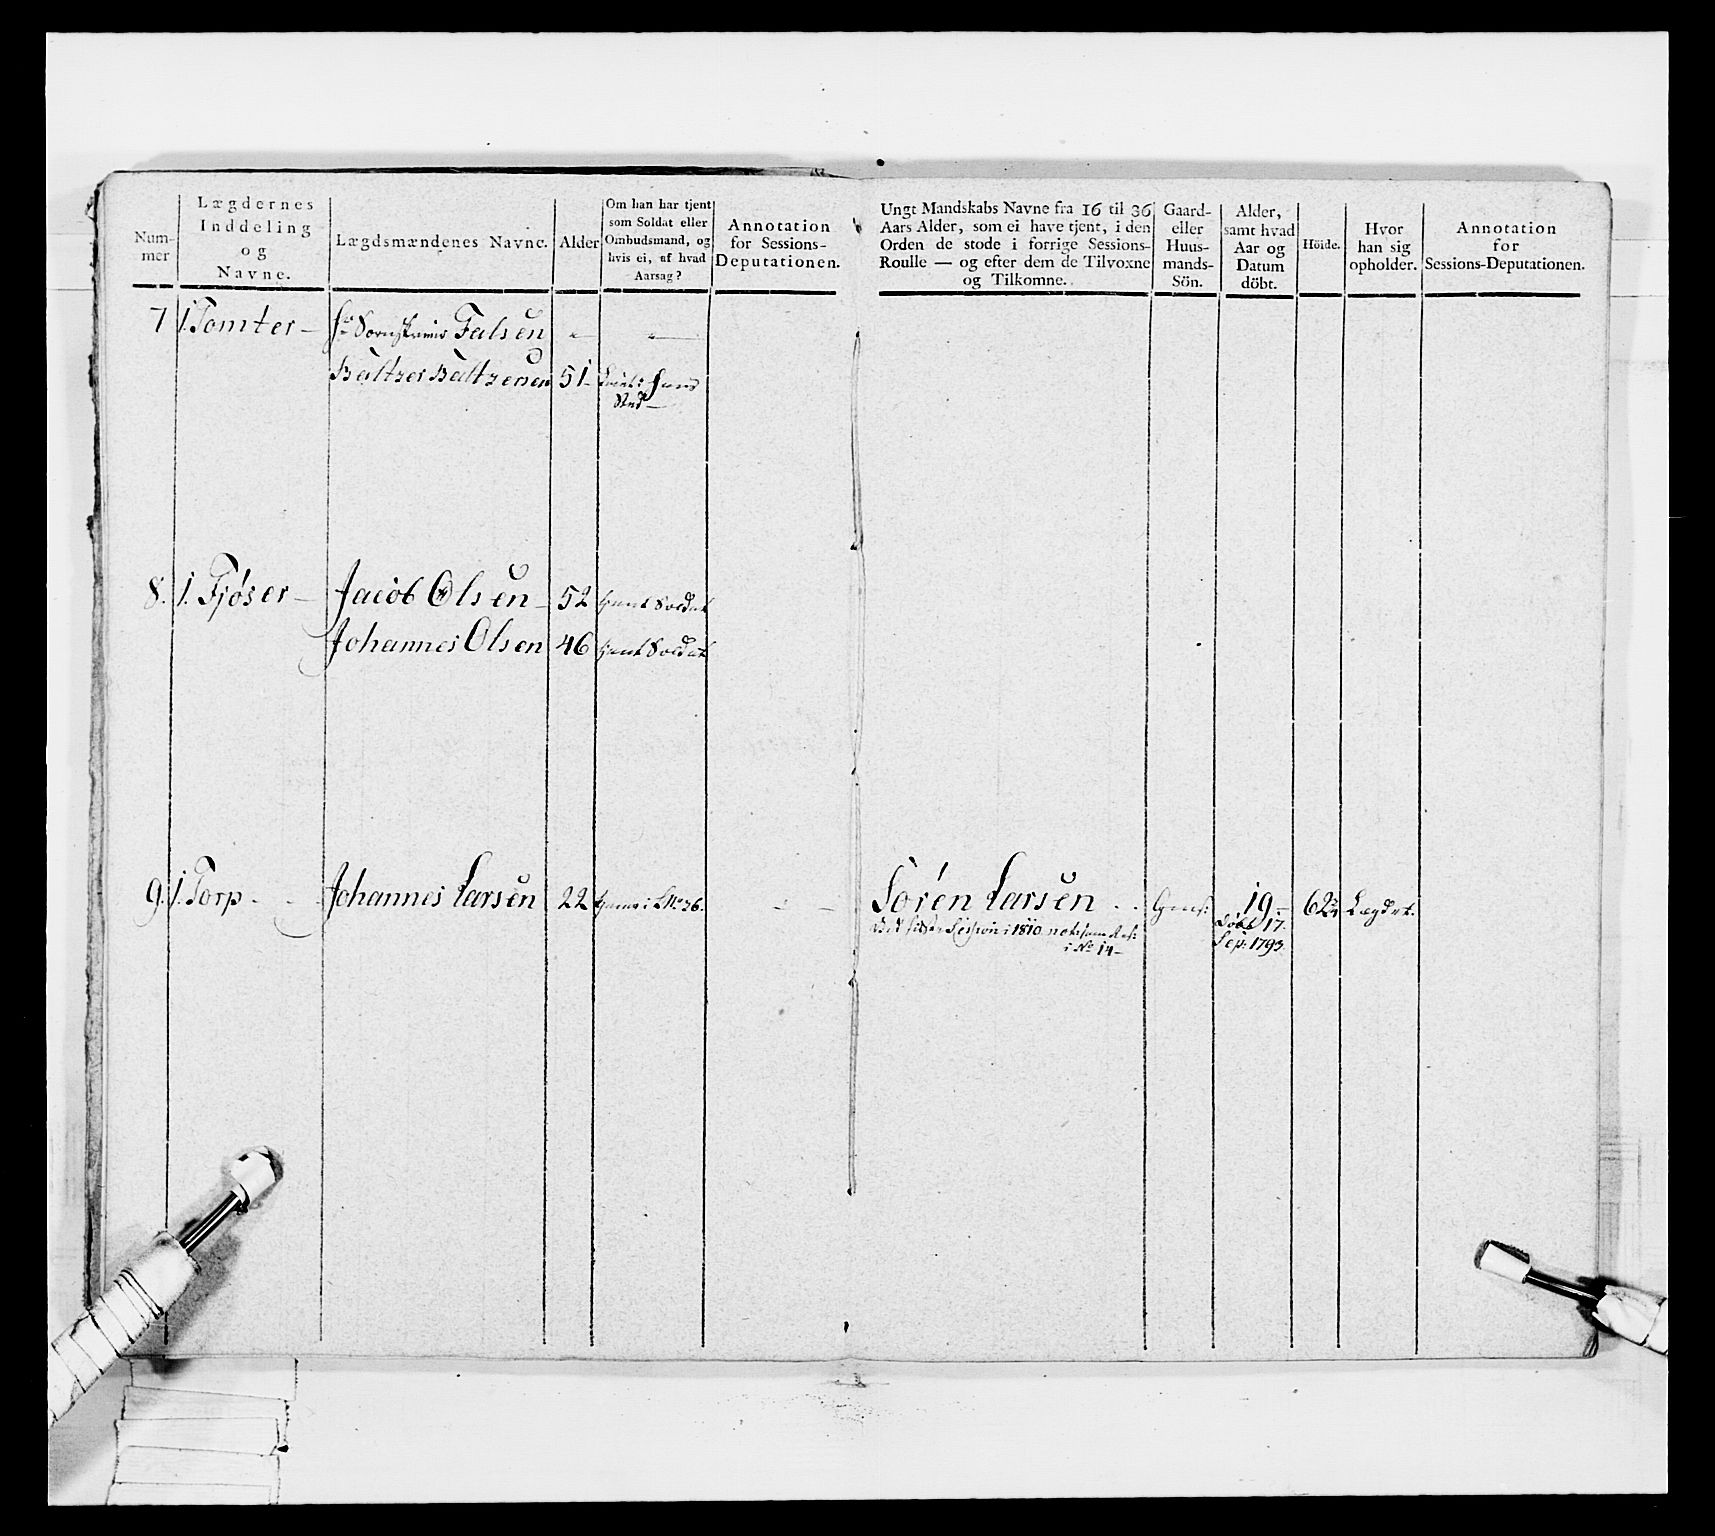 Num-
mer
Lægdernes
Inddeling
og
Navne.
Lægdsmændenes Navne.
Alder
Om han har tjent
som Soldat eller
Ombudsmand, og
hvis ei, af hvad
Aarsag?
Annotation
for Sessions-
Deputationen.
Ungt Mandskabs Navne fra 16 til 36
Aars Alder, som ei have tjent, i den
Orden de stode i forrige Sessions-
Roulle — og efter dem de Tilvoxne
og Tilkomne.
Gaard-
eller
Huus-
mands-
Sön.
Alder,
samt hvad
Aar og
Datum
döbt.
Höide.
Hvor
han sig
opholder.
Annotation
for
Sessions-Deputationen.
7 1. Tomter — Falsen
Baltzer Baltzersen 51-
8. 1. Fjøser — Jacob Olsen - 52 tient Soldat
Johannes Olsen 46 tient Soldat
9. 1. Torp - - Johannes Larsen 22 No 36.
Søren Larsen - - 19- 62 Lægdet.
Session i 1810 Døbt 17.
i No 14- Sep: 1793.